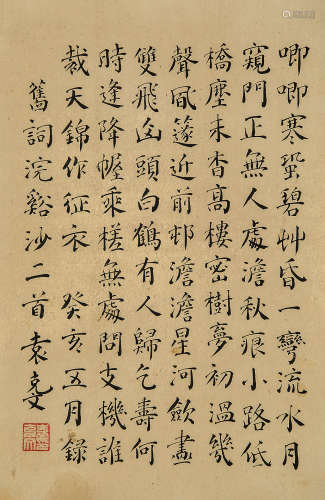 唧唧寒蛩碧艸昏一彎流水月
窺門正無人處澹秋痕小路低
橋塵未杳高樓密樹夢初溫幾
聲風篴近前邨澹澹星河歛畫
雙飛凶頭白鶴有人歸乞壽何
時逢降幄乘槎無處問支機誰
裁天錦作征衣 癸亥五月錄
舊詞浣谿沙二首 袁克文